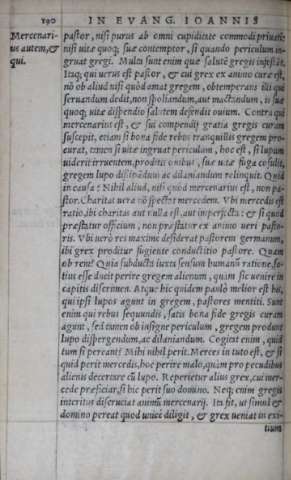 190 IN EVANG. IOANNIS
Mercenari-
us autem, &
qui.
pastor, nisi purus ab omni cupiditate commodi priuati:
nisi uitæ quoq; suæ contemptor, si quando periculum in-
gruat gregi. Multi sunt enim quæ salutē gregis
Itaq; qui uerus est pastor, & cui grex ex animo curæ est,
nō ob aliud nisi quòd amat gregem, obtemperans illi qui
seruandum dedit, non spoliandum, aut mactandum, is suæ
quoq; uitæ dispendio salutem defendit ouium. Contrà qui
mercenarius est, & sui compendij gratia gregis curam
suscepit, etiam si bona fide rebus tranquillis gregem pro-
curat, tamen si uitæ ingruat periculum, hoc est, si lupum
uiderit irruentem, proditis ouibus, suæ uitæ fuga cōsulit,
gregem lupo dissipandum ac dilaniandum relinquit. Quid
in causa? Nihil aliud, nisi quòd mercenarius est, non pa-
stor. Charitas uera nō spectat mercedem. Vbi mercedis est
ratio, ibi charitas aut nulla est, aut imperfecta: & si quod
præstatur officium, non præstatur ex animo ueri pasto-
ris. Vbi uerò res maximè desiderat pastorem germanum,
ibi grex proditur fugiente conductitio pastore. Quam
ob rem? Quia subducta iuxta sensum humanū ratione, sa-
tius esse ducit perire gregem alienum, quàm sic uenire in
capitis discrimen. Atque hic quidem paulò melior est his,
qui ipsi lupos agunt in gregem, pastores mentiti. Sunt
enim qui rebus secundis, satis bona fide gregis curam
agunt, sed tamen ob insigne periculum, gregem produnt
lupo dispergendum, ac dilaniandum. Cogitat enim, quid
tum si pereant? Mihi nihil perit. Merces in tuto est, & si
quid perit mercedis, hoc perire malo, quàm pro pecudibus
alienis decertare cū lupo. Reperietur alius grex, cui mer-
cede præficiar, si hic perit suo domino. Neq; enim gregis
interitus discruciat animū mercenarij. Ita fit, ut simul &
domino pereat quod unicè diligit, & grex ueniat in exi-
tium